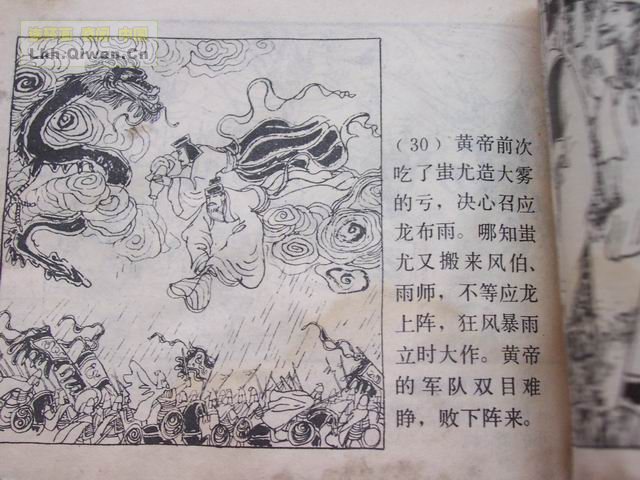 Lhh.Qiwan.Cn
（30）黄帝前次
吃了蚩尤造大雾
的亏，决心召应
龙布雨。哪知蚩
尤又搬来风伯、
雨师，不等应龙
上阵，狂风暴雨
立时大作。黄帝
的军队双目难
睁，败下阵来。